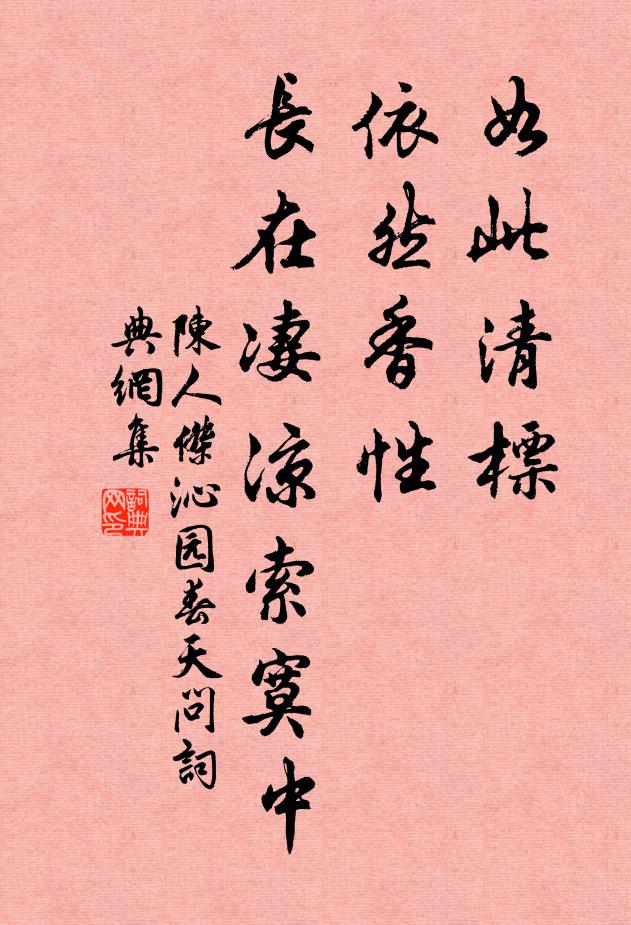 如此清標
依然香性
長在凄涼索寞中
陳人傑沁园春天问詞
典網集
詞典
网印